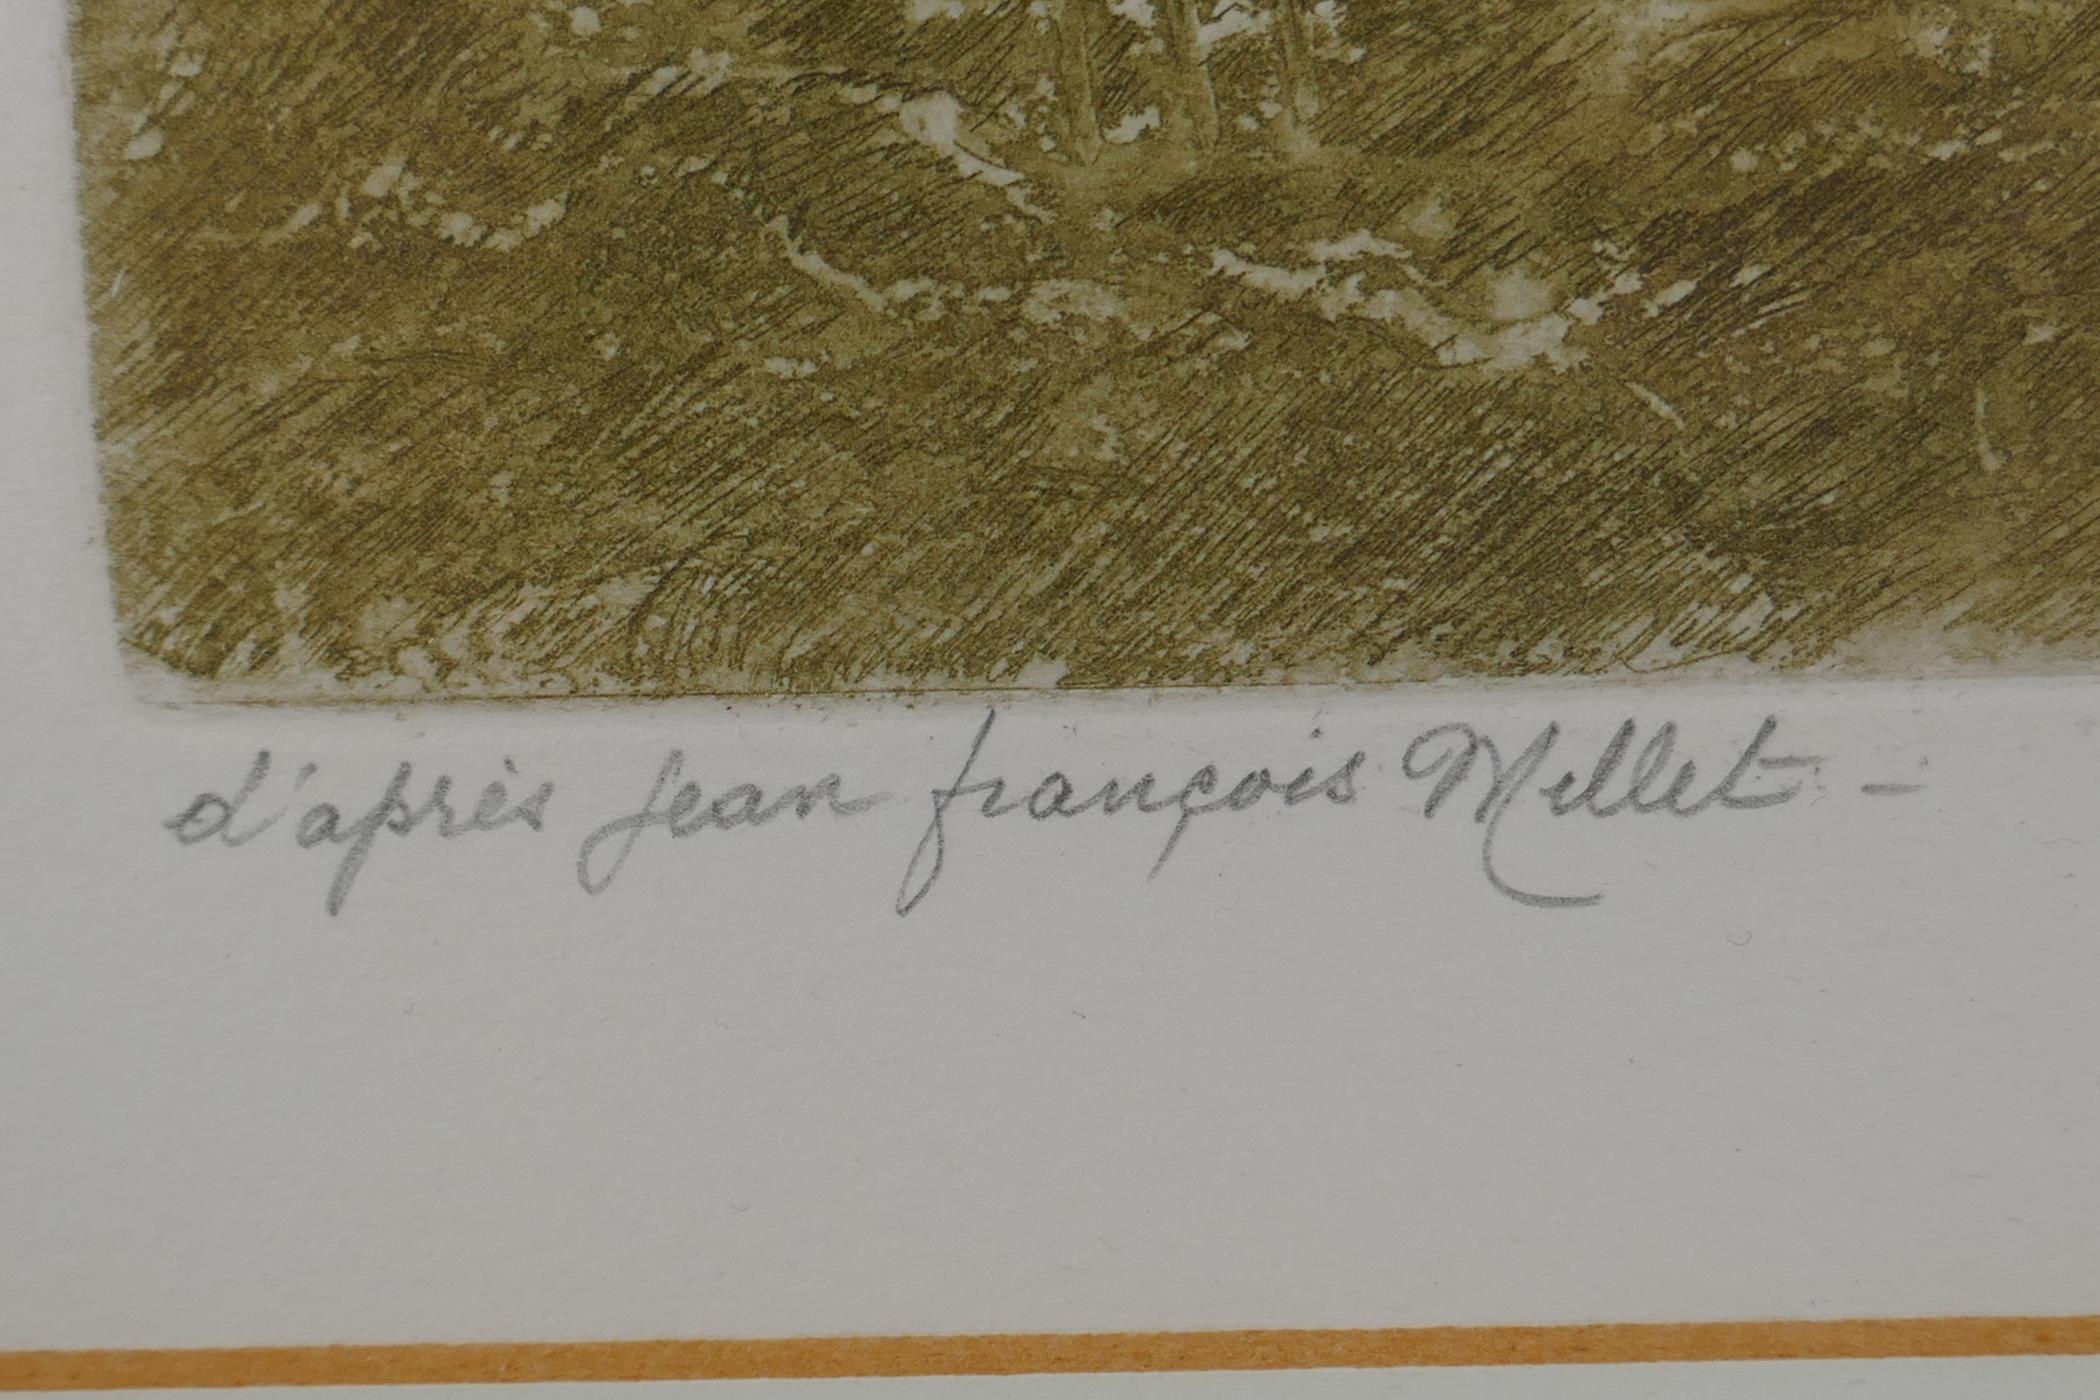 d'après jean françois Millet -